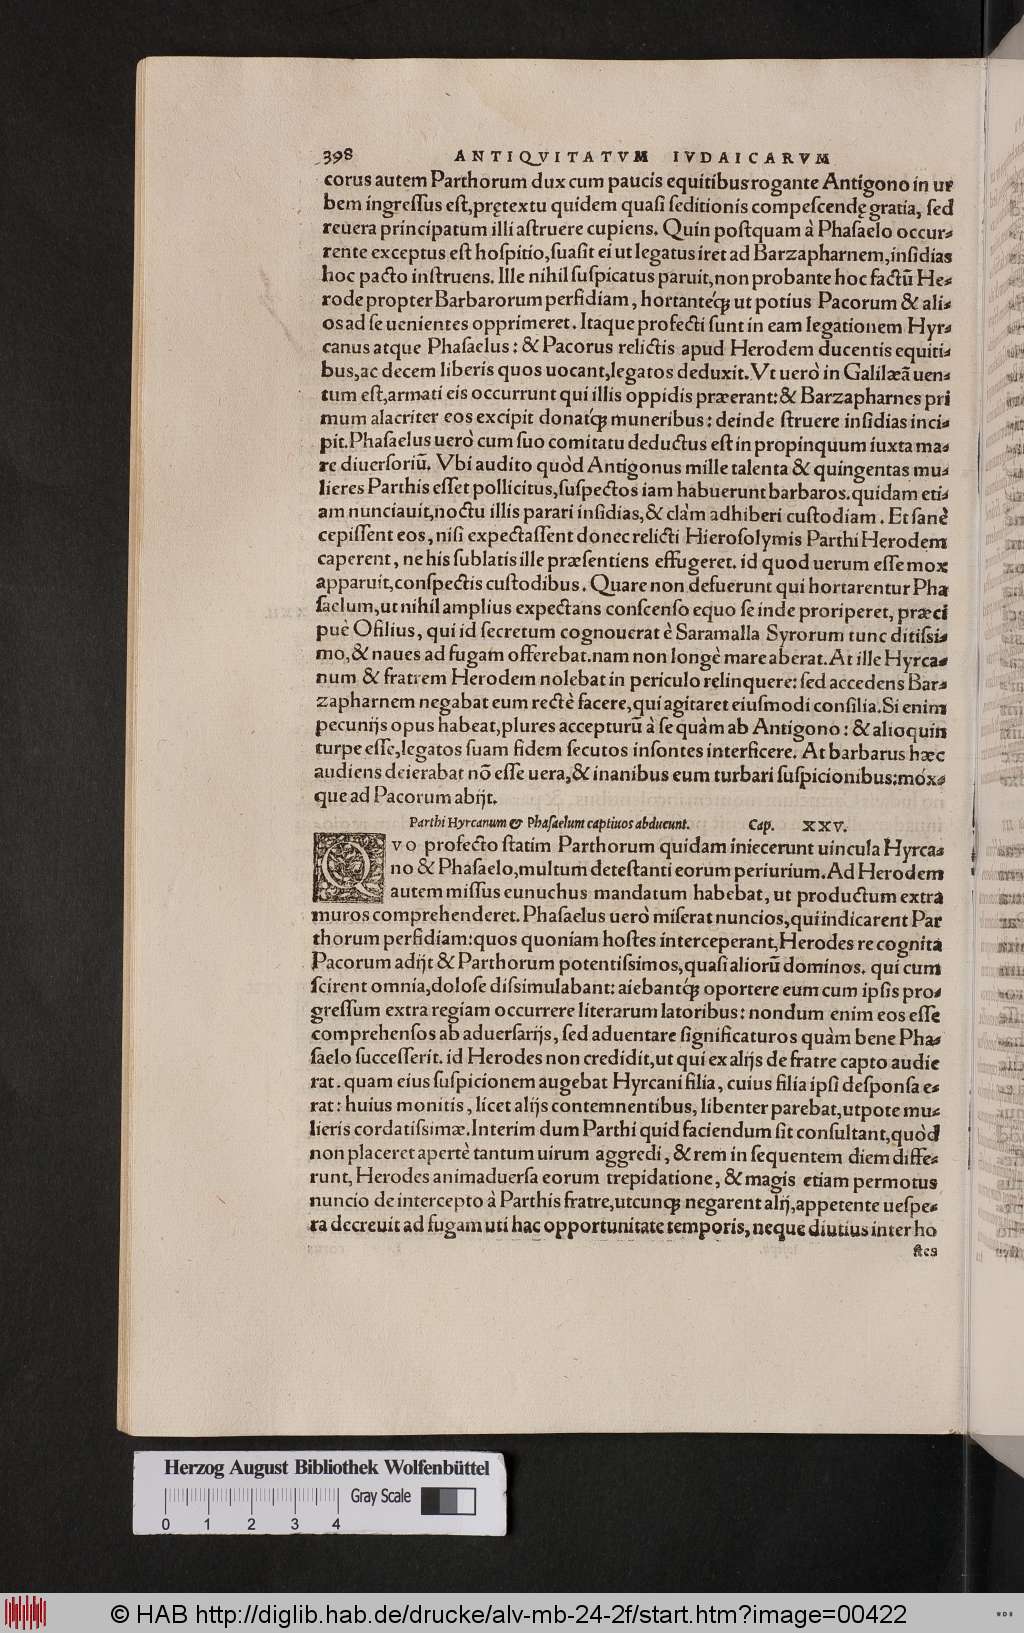 398 ANTIQVITATVM IVDAICARVM
corus autem Parthorum dux cum paucis equitibus rogante Antigono in ur
bem ingreſſus eſt, prętextu quidem quaſi ſeditionis compeſcendę gratia, ſed
reuera principatum illi aſtruere cupiens. Quin poſtquam à Phaſaelo occur-
rente exceptus eſt hoſpitio, ſuaſit ei ut legatus iret ad Barzapharnem, inſidias
hoc pacto inſtruens. Ille nihil ſuſpicatus paruit, non probante hoc factũ He-
rode propter Barbarorum perfidiam, hortanteq́; ut potius Pacorum & ali-
os ad ſe uenientes opprimeret. Itaque profecti ſunt in eam legationem Hyr-
canus atque Phaſaelus: & Pacorus relictis apud Herodem ducentis equiti-
bus, ac decem liberis quos uocant, legatos deduxit. Vt uerò in Galilæã uen-
tum eſt, armati eis occurrunt qui illis oppidis præerant: & Barzapharnes pri
mum alacriter eos excipit donatq́; muneribus: deinde ſtruere inſidias inci-
pit. Phaſaelus uerò cum ſuo comitatu deductus eſt in propinquum iuxta ma-
re diuerſoriũ. Vbi audito quòd Antigonus mille talenta & quingentas mu-
lieres Parthis eſſet pollicitus, ſuſpectos iam habuerunt barbaros. quidam eti-
am nunciauit, noctu illis parari inſidias, & clàm adhiberi cuſtodiam. Et ſanè
cepiſſent eos, niſi expectaſſent donec relicti Hieroſolymis Parthi Herodem
caperent, ne his ſublatis ille præſentiens effugeret. id quod uerum eſſe mox
apparuit, conſpectis cuſtodibus. Quare non defuerunt qui hortarentur Pha
ſaelum, ut nihil amplius expectans conſcenſo equo ſe inde proriperet, præci
puè Ofilius, qui id ſecretum cognouerat è Saramalla Syrorum tunc ditiſsi-
mo, & naues ad fugam offerebat. nam non longè mare aberat. At ille Hyrca-
num & fratrem Herodem nolebat in periculo relinquere: ſed accedens Bar-
zapharnem negabat eum rectè facere, qui agitaret eiuſmodi conſilia. Si enim
pecunijs opus habeat, plures accepturũ à ſe quàm ab Antigono: & alioquin
turpe eſſe, legatos ſuam fidem ſecutos inſontes interficere. At barbarus hæc
audiens deierabat nõ eſſe uera, & inanibus eum turbari ſuſpicionibus: móx-
que ad Pacorum abijt.
Parthi Hyrcanum & Phaſaelum captiuos abducunt. Cap. XXV.
QVO profecto ſtatim Parthorum quidam iniecerunt uincula Hyrca-
no & Phaſaelo, multum deteſtanti eorum periurium. Ad Herodem
autem miſſus eunuchus mandatum habebat, ut productum extra
muros comprehenderet. Phaſaelus uerò miſerat nuncios, qui indicarent Par
thorum perfidiam: quos quoniam hoſtes interceperant, Herodes re cognita
Pacorum adijt & Parthorum potentiſsimos, quaſi aliorũ dominos. qui cum
ſcirent omnia, doloſe diſsimulabant: aiebantq́; oportere eum cum ipſis pro-
greſſum extra regiam occurrere literarum latoribus: nondum enim eos eſſe
comprehenſos ab aduerſarijs, ſed aduentare ſignificaturos quàm bene Pha-
ſaelo ſucceſſerit. id Herodes non credidit, ut qui ex alijs de fratre capto audie
rat. quam eius ſuſpicionem augebat Hyrcani filia, cuius filia ipſi deſponſa e-
rat: huius monitis, licet alijs contemnentibus, libenter parebat, utpote mu-
lieris cordatiſsimæ. Interim dum Parthi quid faciendum ſit conſultant, quòd
non placeret apertè tantum uirum aggredi, & rem in ſequentem diem diffe-
runt, Herodes animaduerſa eorum trepidatione, & magis etiam permotus
nuncio de intercepto à Parthis fratre, utcunq; negarent alij, appetente ueſpe-
ra decreuit ad fugam uti hac opportunitate temporis, neque diutius inter ho
ſtes
Herzog August Bibliothek Wolfenbüttel
Gray Scale
0 1 2 3 4
© HAB http://diglib.hab.de/drucke/alv-mb-24-2f/start.htm?image=00422